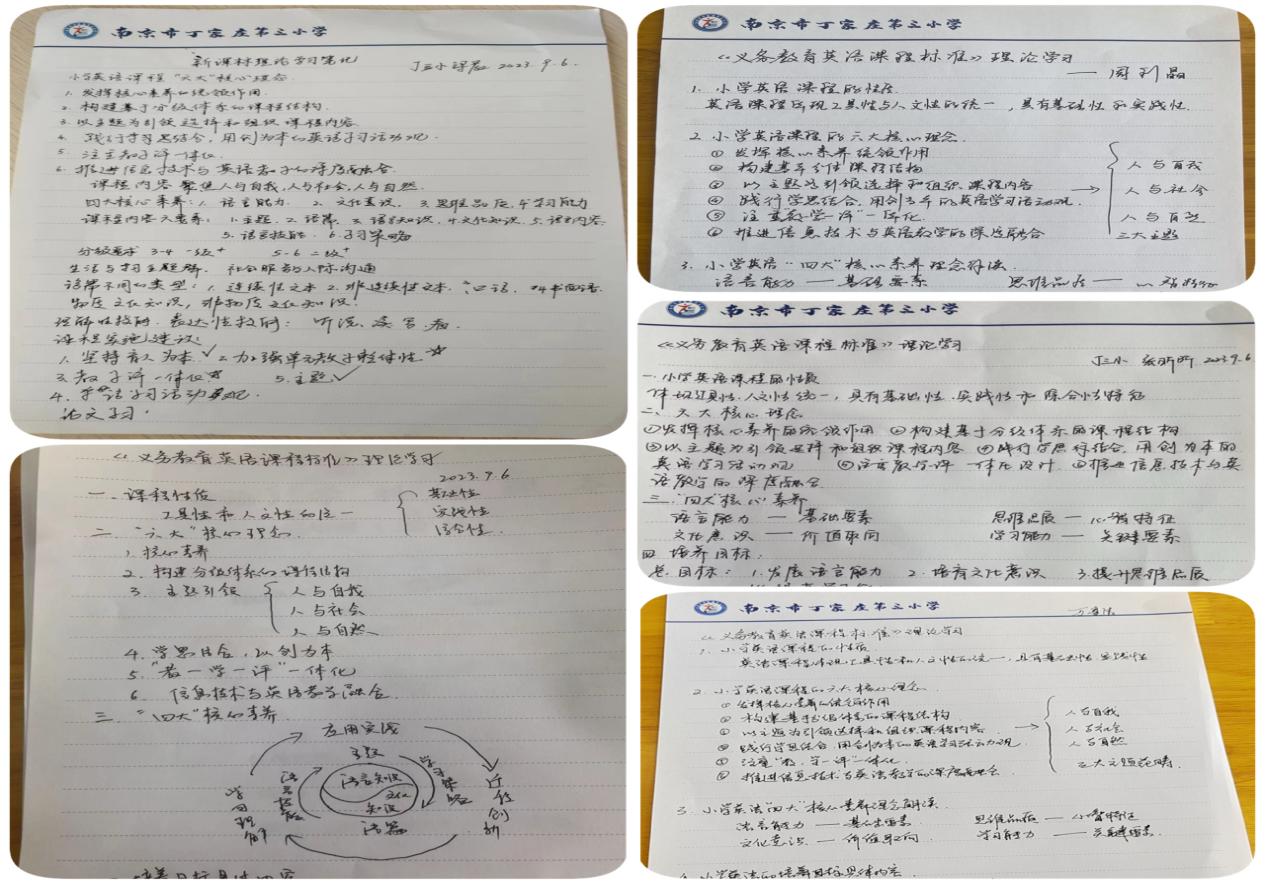 南京市丁家庄第三小学
新课标理论学习笔记
2023.9.6.
小学英语课程“六大”核心理念.
1. 发挥核心素养的统领作用.
2. 构建基于分级体系的课程结构.
3. 以主题为引领选择和组织课程内容
4. 践行学思结合，用创为本的英语学习活动观.
5. 注重教学评一体化
6. 推进信息技术与英语教学的深度融合
课程内容聚焦人与自我，人与社会，人与自然.
四大核心素养：1. 语言能力. 2. 文化意识. 3. 思维品质. 4. 学习能力
课程内容六要素：1. 主题. 2. 语篇. 3. 语言知识. 4. 文化知识. 5. 语言内容
5. 语言技能. 6. 学习策略
分级要求 3-4 一级+ 5-6 二级+
生活与学习主题群. 社会服务与人际沟通
语篇不同的类型：1. 连续性文本 2. 非连续性文本.
物质文化知识，非物质文化知识.
理解性技能. 表达性技能： 听说、读写、看.
课程实施建议：
1. 坚持育人为本 ✓ 2. 加强单元教学整体性 ☆
3. 教学评一体化 5. 主题 ✓
4. 学习活动观.
南京市丁家庄第三小学
《义务教育英语课程标准》理论学习
—— 周利晶
1. 小学英语课程的性质
英语课程体现工具性与人文性的统一，具有基础性和实践性.
2. 小学英语课程的六大核心理念.
① 发挥核心素养统领作用
② 构建基于分级课程结构
③ 以主题为引领选择和组织课程内容 →
④ 践行学思结合，用创为本的英语学习活动观.
⑤ 注重“教学评”一体化.
⑥ 推进信息技术与英语教学的深度融合
人与自我
人与社会
人与自然
三大主题
3. 小学英语“四大”核心素养理念解读.
语言能力 —— 基础要素 思维品质 —— 心智特征
南京市丁家庄第三小学
《义务教育英语课程标准》理论学习
丁三小 张昕昕 2023.9.6
一. 小学英语课程的性质
体现工具性、人文性统一，具有基础性、实践性和综合性特征
二、六大核心理念
①发挥核心素养的统领作用 ②构建基于分级体系的课程结构
③以主题为引领选择和组织课程内容 ④践行学思结合，用创为本的
英语学习活动观 ⑤注重教学评一体化设计 ⑥推进信息技术与英
语教学的深度融合
三、“四大”核心素养
语言能力 —— 基础要素 思维品质 — 心智特征
文化意识 —— 价值取向 学习能力 — 关键要素
四. 培养目标：
总目标： 1. 发展语言能力 2. 培育文化意识 3. 提升思维品质
《义务教育英语课程标准》理论学习
2023.9.6
一. 课程性质
工具性和人文性的统一
基础性
实践性
综合性.
二 “六大”核心理念.
1. 核心素养
2. 构建分级体系的课程结构
3. 主题引领
人与自我
人与社会
人与自然
4. 学思结合，以创为本
5. “教—学—评”一体化
6. 信息技术与英语教学融合.
三 “四大”核心素养
应用实践
主题
语言知识
文化
知识
语篇
语言技能
学习策略
学习理解
迁移创新
南京市丁家庄第三小学
《义务教育英语课程标准》理论学习
1. 小学英语课程的性质
英语课程体现工具性和人文性的统一，具有基础性、实践性
2. 小学英语课程的六大核心理念
① 发挥核心素养的统领作用
② 构建基于分级体系的课程结构
③ 以主题为引领选择和组织课程内容 →
④ 践行学思结合，用创为本的英语学习活动观.
⑤ 注重“教、学、评”一体化
⑥ 推进信息技术与英语教学的深度融合.
人与自我
人与社会
人与自然
三大主题范畴.
3. 小学英语“四大”核心素养理念解读.
语言能力 —— 基础要素 思维品质 —— 心智特征
文化意识 —— 价值取向 学习能力 —— 关键要素.
4. 小学英语的培养目标具体内容